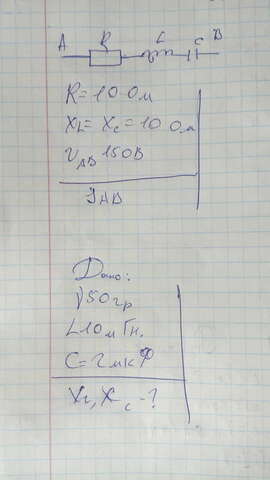 A R L C B
R = 10 Ом
XL = Xc = 10 Ом
UAB 150В
JAB
Дано:
γ 50 гр
L 10 м Гн.
C = 2 мкФ
XL, Xc - ?